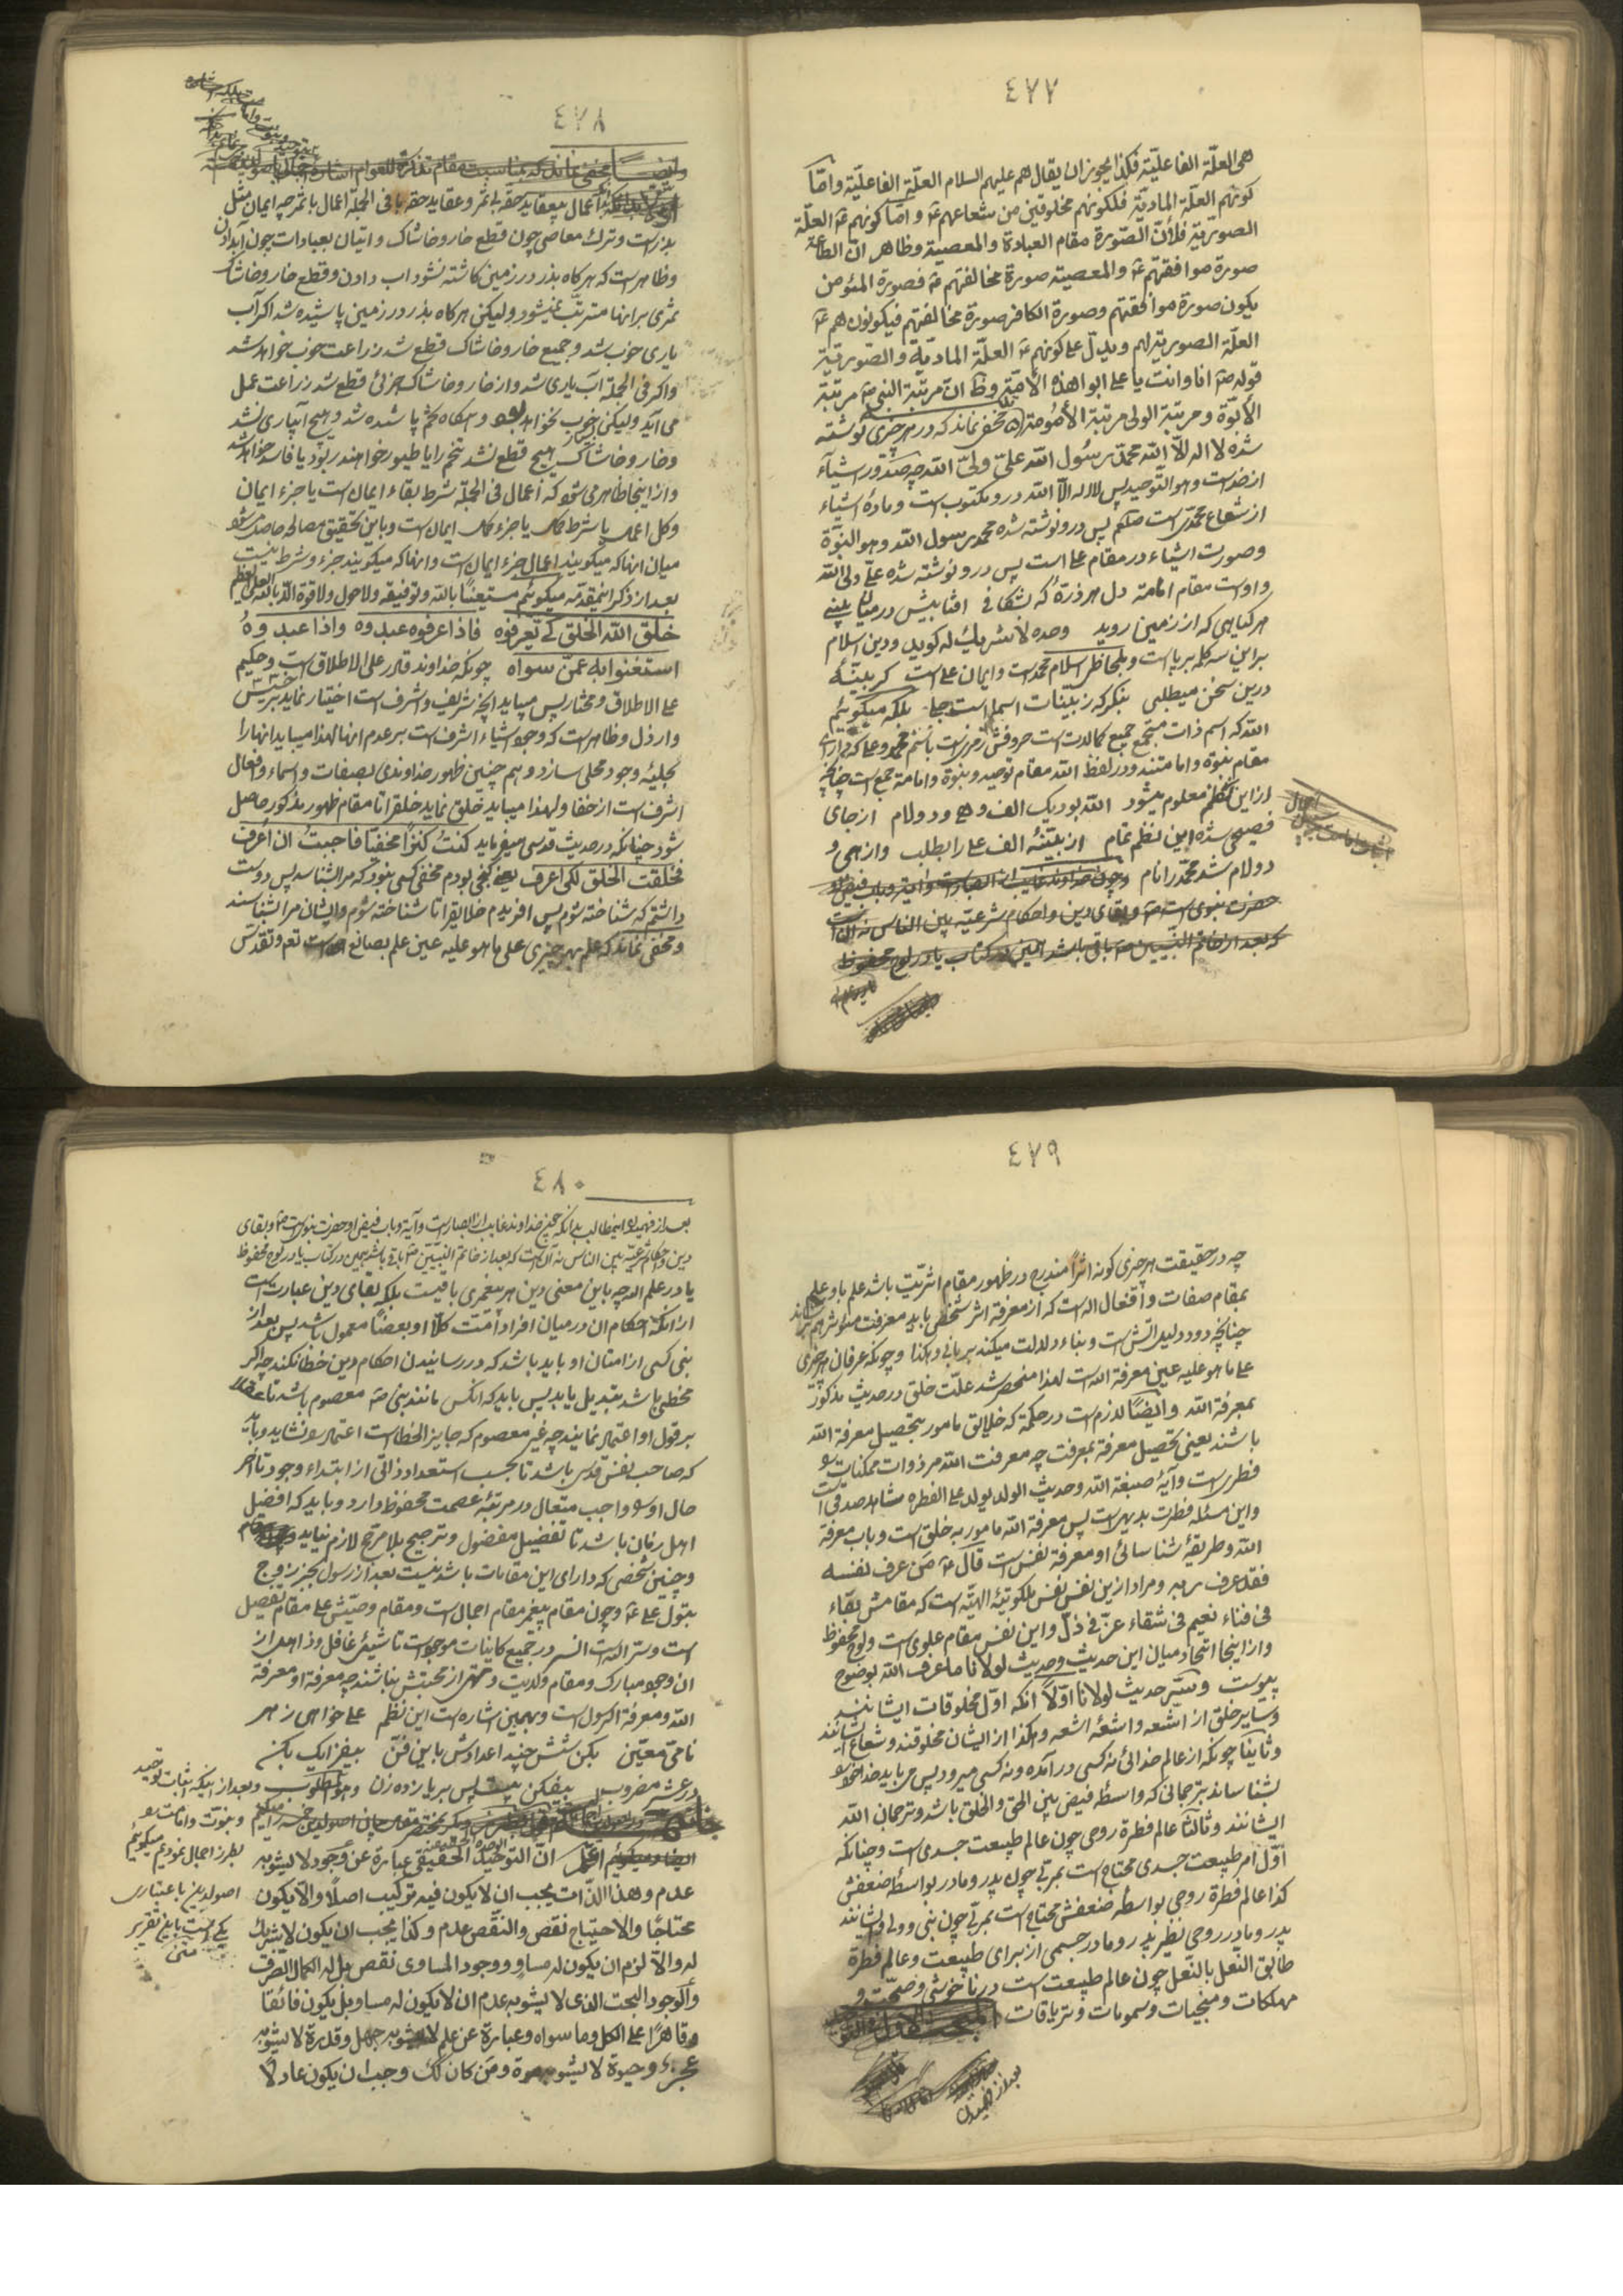 ٤٧٧
هی العلّة الفاعلیّة فکذا یجوز ان یقال هم علیهم السلام العلّة الفاعلیّة وامّا
کونهم العلّة المادیّة فلکونهم مخلوقین من شعاعهم ع و امّا کونهم ع العلّة
الصوریّة فلأنّ الصّورة مقام العبادة والمعصیة وظاهر انّ الطاعة
صورة موافقتهم ع والمعصیة صورة مخالفتهم ع فصورة المؤمن
یکون صورة موافقتهم وصورة الکافر صورة مخالفتهم فیکونون هم ع
العلّة الصوریة لهم ویدلّ علی کونهم ع العلّة المادیّة والصّوریّة
قوله ص انا وانت یا علی ابوا هذه الأمّة وظ انّ مرتبة النبی ص مرتبة
الأبوّة ومرتبة الولی مرتبة الأمومة مخفی نماند که در هر چیزی نوشته
شده لا اله الّا الله محمّد رسول الله علیّ ولیّ الله چه صدور اشیاء
از خداست وهو التّوحید پس لا اله الّا الله درو مکتوب است وماده اشیاء
از شعاع محمّدیست صلعم پس درو نوشته شده محمد رسول الله وهو النبوّة
وصورت اشیاء در مقام علی است پس درو نوشته شده علیّ ولی الله
واوست مقام امامة دل هر ذرّه که بشکافی افتابیش در میان بینی
هر گیاهی که از زمین روید وحده لا شریک له گوید ودین اسلام
براین سه کلمه برپاست وبلحاظی اسلام محمداست وایمان علی است گر بیّنه
درین سخن میطلبی بنگر که ز بینات اسما است بلکه میگوئیم
الله که اسم ذات مستجمع جمیع کمالات است
مقام نبوّة وامامتند ودر لفظ الله مقام توحید ونبوة وامامة جمع است چنانچه
ازاین نظم معلوم میشود الله بود یک الف وه ودو لام از جای
فصیحی شده این نظم تمام از بیّنه الف علی را بطلب وازهی و
دولام شد محمّد را نام وچون خداوند غایب از ابصار است
حضرت نبوی است ص وبقای دین واحکام شرعیّه بین الناس نه آن است
که بعد از خاتم النّبیین ص باقی باشد همین در کتاب یا در لوح محفوظ
٤٧٨
اعمال بیعقاید حقه بی ثمر وعقاید حقه با فی الجملة اعمال با ثمر چه ایمان مثل
بذراست وترک معاصی چون قطع خار وخاشاک واتیان بعبادات چون آبدادن
وظاهر است که هرگاه بذر در زمین کاشته نشود اب دادن وقطع خار وخاشاک
ثمری برانها مترتّب نمیشود ولیکن هرگاه بذر در زمین پاشیده شد اگر آب
یاری خوب شد وجمیع خار وخاشاک قطع شد زراعت خوب خواهد شد
واگر فی الجمله آب یاری شد واز خار وخاشاک جزئی قطع شد زراعت عمل
می آید ولیکن خوب نخواهد بود وهرگاه تخم پاشیده شد وهیچ آبیاری نشد
وخار وخاشاک هیچ قطع نشد تخم را یا طیور خواهند ربود یا فاسد خواهد شد
وازاینجا ظاهر می شود که أعمال فی الجمله شرط بقاء ایمان است یا جزء ایمان
وکل اعمال یا شرط کمال یا جزء کمال ایمان است وباین تحقیق مصالحه حاصل میشود
میان انها که میگویند اعمال جزء ایمان است وانها که میگویند جزء وشرط نیست
بعد از ذکر این مقدّمه میگوئیم مستعینًا بالله وتوفیقه ولا حول ولا قوة الّا بالله العلی العظیم
خلق الله الخلق لکی یعرفوه فاذا عرفوه عبدوه واذا عبدوهُ
استغنوا به عمّن سواه چونکه خداوند قادر علی الاطلاق است وحکیم
علی الاطلاق ومختار پس میباید آنچه شریف واشرف است اختیار نماید بر خسیس
وارذل وظاهر است که وجود اشیاء اشرف است بر عدم انها لهذا میباید انها را
بحلیه وجود محلی سازد وهم چنین ظهور خداوندی بصفات واسماء وافعال
اشرف است از خفا ولهذا میباید خلق نماید خلق را تا مقام ظهور مذکور حاصل
شود چنانکه در حدیث قدسی میفرماید کنتُ کنزًا مخفیًّا فاحببتُ ان اُعرف
فخلقت الخلق لکی اعرف یعنی گنجی بودم مخفی کسی نبود که مرا بشناسد پس دوست
داشتم که شناخته شوم پس افریدم خلایق را تا شناخته شوم وایشان مرا بشناسند
ومخفی نماند که علم بهر چیزی علی ما هو علیه عین علم بصانع است تعم وتقدّس
٤٧٩
چه در حقیقت هر چیزی کونه اثراً مندرج در ظهور مقام اثریّت باشد علم باو علم
بمقام صفات وافعال الله است که از معرفة اثر شخصی باید معرفت مؤثر هم
چنانچه دود دلیل آتش است وبناء دلالت میکند بر بانی وهکذا وچونکه عرفان هر چیزی
علی ما هو علیه عین معرفة الله است لهذا منحصر شد علّت خلق در حدیث مذکور
بمعرفة الله وایضًا لازم است در حکمة که خلایق مامور بتحصیل معرفة الله
باشند یعنی تحصیل معرفة بمعرفت چه معرفت الله مر ذوات ممکنات را
فطریست وآیهٔ صبغة الله وحدیث الولد یولد علی الفطره شاهد صدق است
واین مسئله فطرت بدیهی است پس معرفة الله مامور به خلق است وباب معرفة
الله وطریقهٔ شناسائی او معرفة نفس است قال ع من عرف نفسه
فقد عرف ربه ومراد ازین نفس نفس ملکوتیّهٔ الهیّه است که مقامش بقاء
فی فناء نعیم فی شقاء عزّ فی ذلّ واین نفس مقام علوی است ولوح محفوظ
وازاینجا اتحاد میان این حدیث وحدیث لولانا ما عرف الله بوضوح
پیوست وسرّ حدیث لولانا اوّلاً آنکه اوّل مخلوقات ایشانند
وسایر خلق از اشعه واشعهٔ اشعه وهکذا از ایشان مخلوقند وشعاع ایشانند
وثانیًا چونکه از عالم خدائی نه کسی درآمده ونه کسی میرود پس می باید خدا خود را
بشناساند بترجمانی که واسطه فیض بین الحق والخلق باشد وترجمان الله
ایشانند وثالثًا عالم فطرة روحی چون عالم طبیعت جسدی است وچنانکه
اوّل امر طبیعت جسدی محتاج است بمربّی چون پدر ومادر بواسطه ضعفش
کذا عالم فطرة روحی بواسطه ضعفش محتاج است بمربّی چون نبی وولی وایشانند
پدر ومادر روحی نظیر پدر ومادر جسمی از برای طبیعت وعالم فطرة
طابق النعل بالنعل چون عالم طبیعت است در ناخوشی وصحّت و
مهلکات ومنجیات وسمومات وتریاقات
بعد از فهمیدن
٤٨٠
بعد از فهمیدن این مطالب بدانکه چون خداوند غایب از ابصار است وآیه وباب فیض او حضرت نبوی است ص وبقای
دین واحکام شرعیّه بین الناس نه آن است که بعد از خاتم النّبیّین ص باقی باشد همین در کتاب یا در لوح محفوظ
یا در علم الله چه باین معنی دین هر پیغمبری باقیست بلکه بقای دین عبارت است
از آنکه احکام ان در میان افراد اُمّت کلًّا او بعضًا معمول باشد پس بعد از
نبی کسی از امتان او باید باشد که در رسانیدن احکام دین خطا نکند چه اگر
مخطی باشد تبدیل یابد پس باید که آنکس مانند نبی ص معصوم باشد تا عقلا
بر قول او اعتماد نمایند چه غیر معصوم که جایز الخطا است اعتماد را نشاید وباید
که صاحب نفس قدسی باشد تا بحسب استعداد ذاتی از ابتداء وجود تا آخر
حال او را واجب متعال در مرتبه عصمت محفوظ دارد وباید که افضل
اهل زمان باشد تا تفضیل مفضول وترجیح بلا مرجّح لازم نیاید
وچنین شخصی که دارای این مقامات باشد نیست بعد از رسول بجز زوج
بتول علی ع وچون مقام پیغمبر مقام اجمال است ومقام وصیّش علی مقام تفصیل
است وسرّ الله است در جمیع کاینات موجود است تا شیئی غافل وذاهل از
ان وجود مبارک ومقام ولایت وتهی از محبتش نباشند چه معرفة او معرفة
الله ومعرفة الرسول است وبهمین اشاره است این نظم علی خواهی ز هر
نامی معیّن بکن شش چند اعدادش باین فنّ بیفزا یک بکن
در عشر مضروب بیفکن بیست پس بر یازده زن وهو المطلوب وبعد از اینکه اثبات توحید
ونبوّت وامامت را
بطرز اجمال نمودیم میگوئیم
اصول دین باعتباری
یکی است باین تقریر
انّ التوحید الحقیقی عبارة عن وجود لا یشوبه
عدم وهذا الذّات یجب ان لا یکون فیه ترکیب اصلًا والّا یکون
محتاجًا والاحتیاج نقص والنّقص عدم وکذا یجب ان یکون لا شریک
له والّا لزم ان یکون له مساوٍ ووجود المساوی نقص بل له الکمال الصّرف
والوجود البحت الذی لا یشوبه عدم ان لا یکون له مساو بل یکون فائقًا
وقاهرًا علی الکل وما سواه وعبارة عن علم لا یشوبه جهل وقدرة لا یشوبه
عجز وحیوة لا یشوبه موة ومن کان کک وجب ان یکون عادلًا